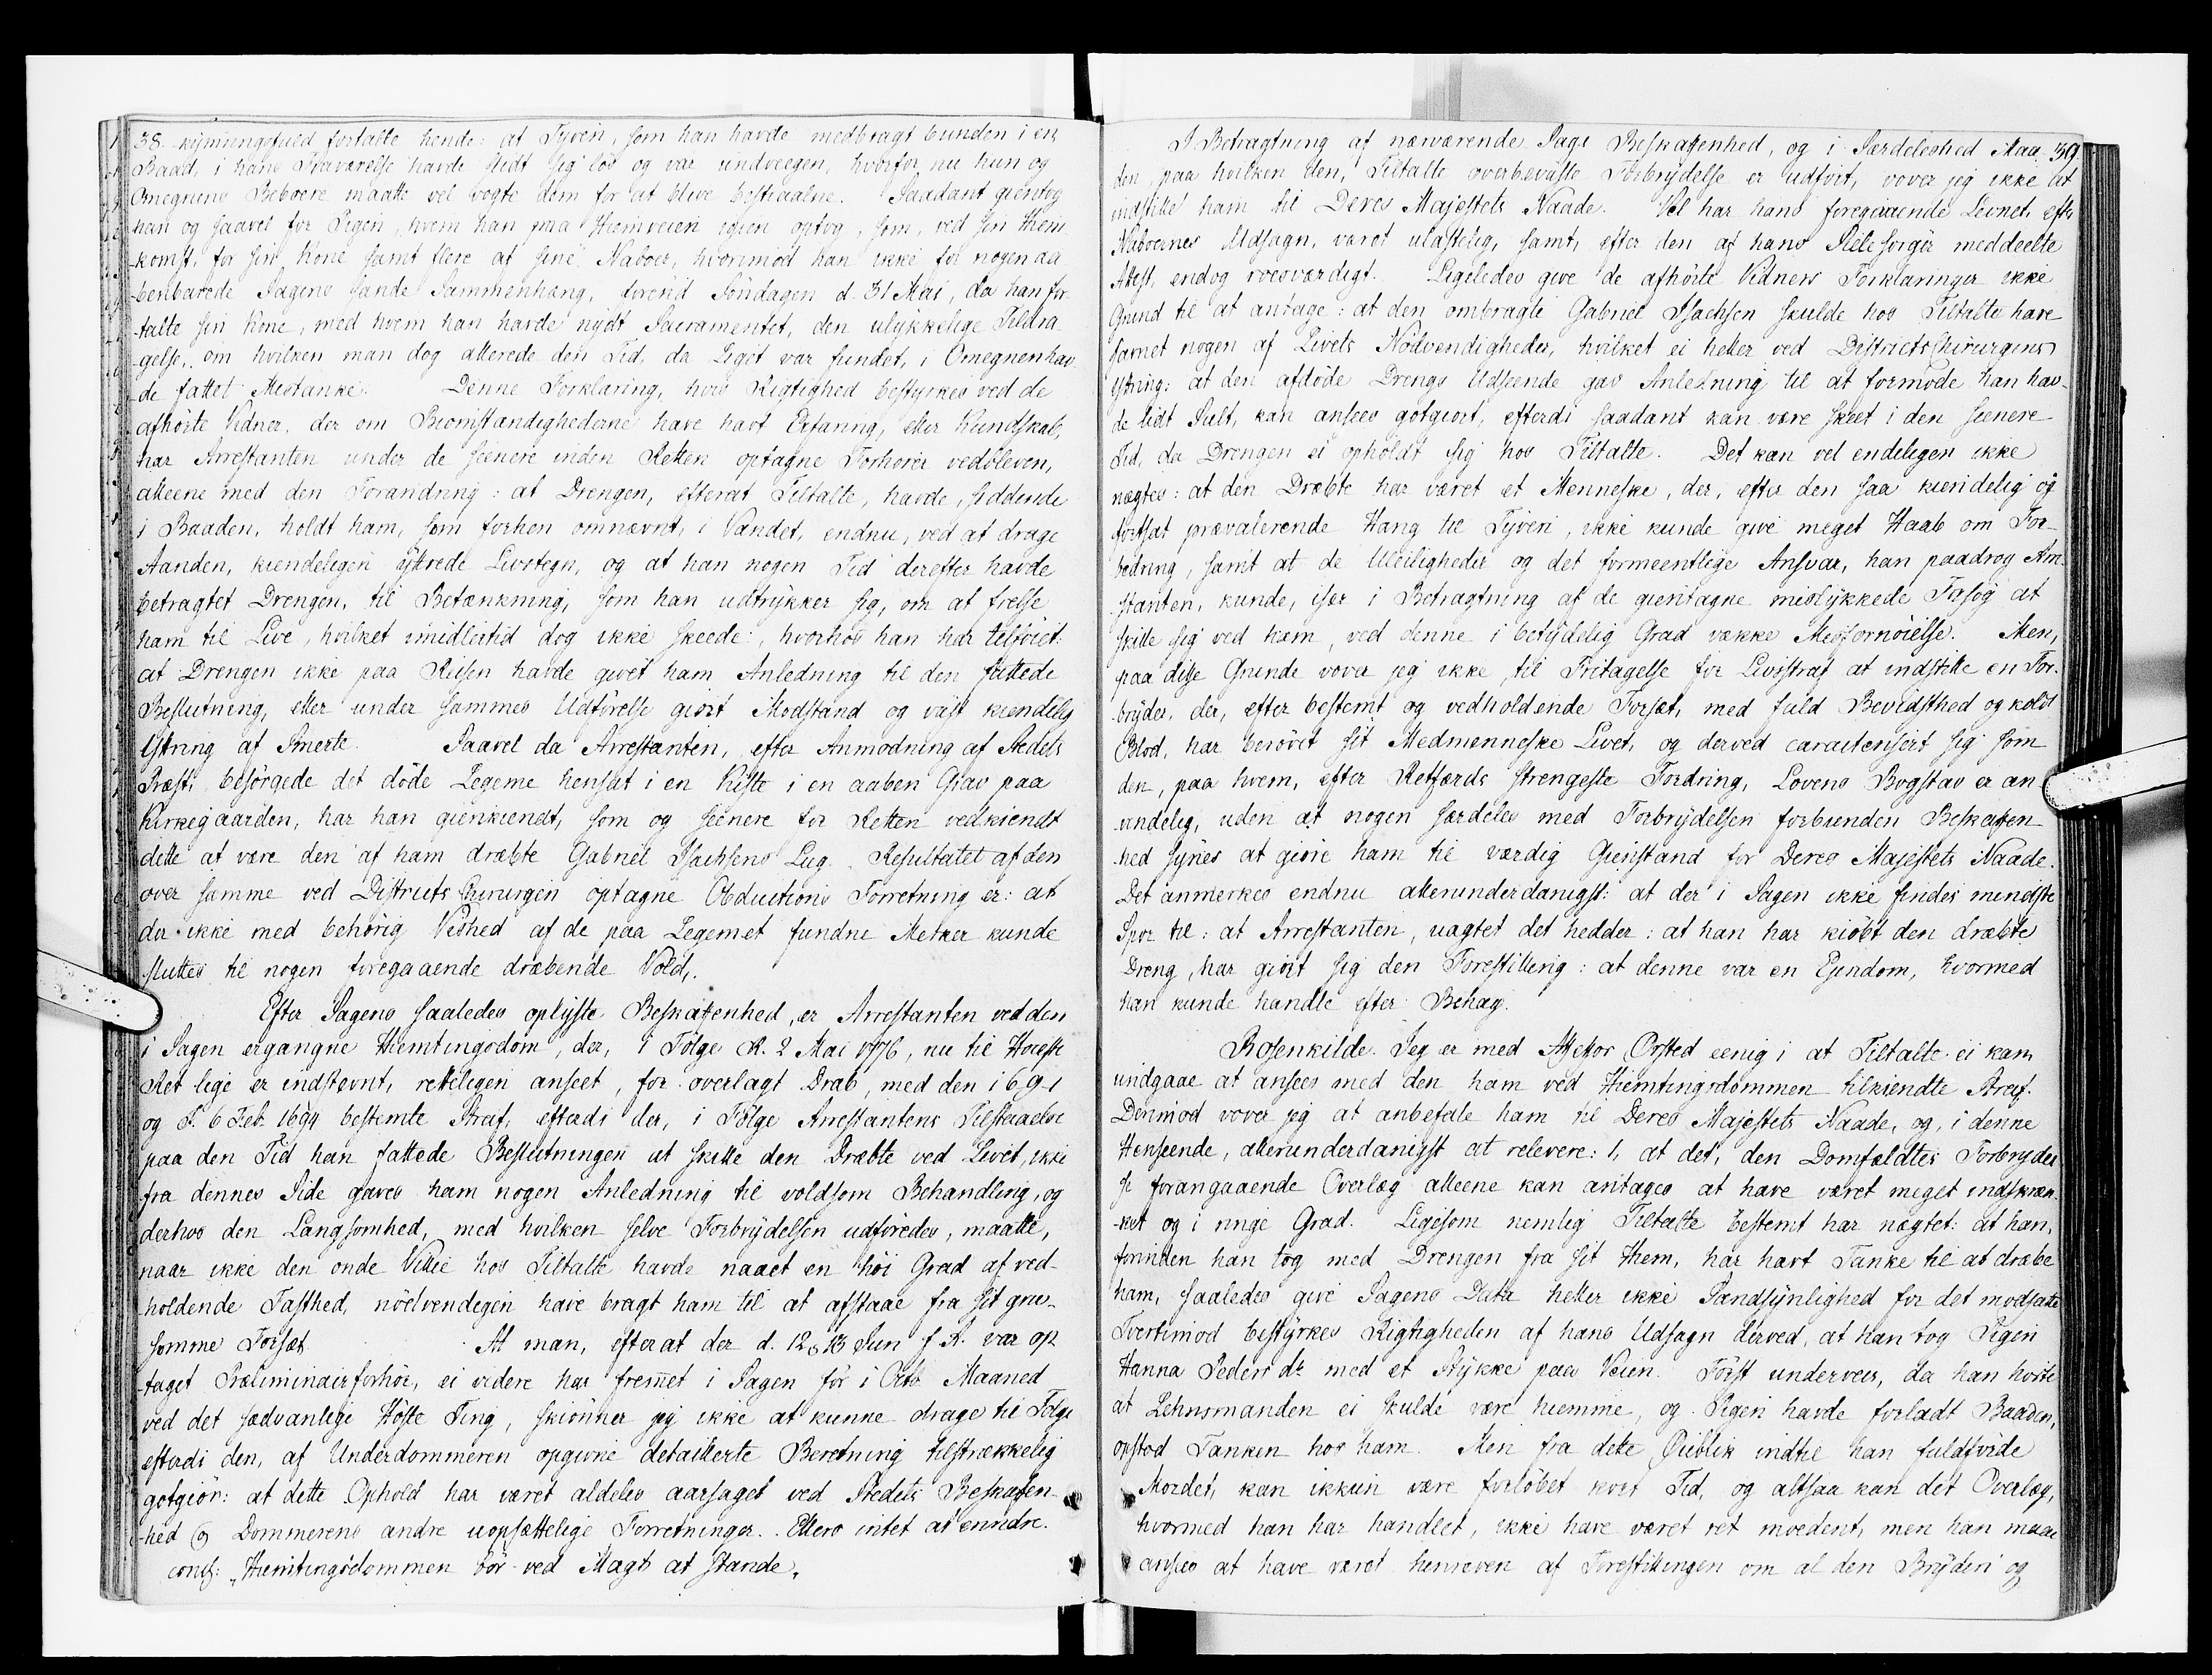 38. -kymringsfuld fortalte hende: at Tyven, som han havde medbragt bunden i en
Baad, i hans Fraværelse havde slidt sig løs og var undveegen, hvorfor nu hun og
Omegnens Beboere maatte vel vogte dem for at blive bestiaalne. Saadant gientog
han og saavel for Pigen, hvem han paa Hiemveien igien optog, som, ved sin Hiem
komst, for sin Kone samt flere af sine Naboer, hvorimod han ikke for nogen aa
benbarede Sagens sande Sammenhæng, førend Søndagen d. 31 Mai, da han for
talte sin Kone, med hvem han havde nydt Sacramentet, den ulykkelige Tildra
gelse, om hvilken man dog allerede den Tid, da Liget var fundet, i Omegnen hav
de fattet Mistanke. Denne Forklaring, hvis Rigtighed bestyrkes ved de
afhørte Vidner, der om Biomstændighederne have havt Erfaring, eller Kundskab,
har Arrestanten under de seenere inden Retten optagne Forhører vedbleven,
alleene med den Forandring: at Drengen, efterat Tiltalte, havde, siddende
i Baaden, holdt ham, som forhen omnævnt, i Vandet, endnu, ved at drage
Aanden, kiendeligen yttrede Livstegn, og at han nogen Tid derefter havde
betragtet Drengen, til Betænkning, som han udtrykker sig, om at frelse
ham til Live, hvilket imidlertid dog ikke skeede: hvorhos han har tilføiet:
at Drengen ikke paa Reisen havde givet ham Anledning til den fattede
Beslutning, eller under sammes Udførelse giort Modstand og viist kiendelig
Yttring af Smerte. Saavel da Arrestanten, efter Anmodning af Stedets
Præst, besørgede det døde Legeme hensat i en Kiste i en aaben Grav paa
Kirkegaarden, har han gienkiendt, som og seenere for Retten vedkiendt
dette at være den af ham dræbte Gabriel Isachsens Liig. Resultatet af den
over samme ved Districts Chirurgen optagne Obductions Forretning er: at
der ikke med behørig Vished af de paa Legemet fundne Mærker kunde
sluttes til nogen foregaaende dræbende Vold.
Efter Sagens saaledes oplyste Beskaffenhed, er Arrestanten ved den
i Sagen ergangne Hiemtingsdom, der, i Følge R. 2 Mai 1776, nu til Høieste
Ret lige er indstevnt, retteligen anseet, for overlagt Drab, med den i 6-9-1
og F. 6 Feb. 1694 bestemte Straf, efterdi der, i Følge Arrestantens Tilstaaelse
paa den Tid han fattede Beslutningen at skille den Dræbte ved Livet, ikke
fra dennes Side gaves ham nogen Anledning til voldsom Behandling, og
derhos den Langsomhed, med hvilken selve Forbrydelsen udføredes, maatte,
naar ikke den onde Villie hos Tiltalte havde naaet en høi Grad af ved-
holdende Fasthed, nødvendigen have bragt ham til at afstaae fra sit gru-
somme Forsæt. At man, efterat der d. 12 & 13 Jun f. A. var op
taget Præliminairforhør, ei videre har fremmet i Sagen før i Octb Maaned
ved det sædvanlige Høste Ting, skiønner jeg ikke at kunne drage til Følge
efterdi den, af Underdommeren opgivne detaillerte Beretning tilstrækkelig
gotgiør: at dette Ophold har været aldeles aarsaget ved Stedets Beskaffen-
-hed og Dommerens andre uopsættelige Forretninger. Ellers intet at erindre.
conf: "Hiemtingsdommen bør ved Magt at stande."
I Betragtning af nærværende Sags Beskaffenhed, og i Særdeleshed Maa 39
den, paa hvilken den, Tiltalte overbeviiste Forbrydelse er udført, vover jeg ikke at
indstille ham til Deres Majestets Naade. Vel har hans foregaaende Levnet, efter
Naboernes Udsagn, været ulastelig, samt, efter den af hans Sielesørger meddeelte
Attest, endog roesværdigt. Ligeledes give de afhørte Vidners Forklaringer ikke
Grund til at antage: at den ombragte Gabriel Isachsen skulde hos Tiltalte have
savnet nogen af Livets Nødvendigheder, hvilket ei heller ved Districts Chirurgens
Yttring: at den afdøde Drengs Udseende gav Anledning til at formode han hav-
de lidt Sult, kan ansees gotgiort, efterdi saadant kan være skeet i den seenere
Tid, da Drengen ei opholdt sig hos Tiltalte. Det kan vel endeligen ikke
nægtes: at den Dræbte har været et Menneske, der, efter den saa kiendelig og
fortsat prævalerende Hang til Tyveri, ikke kunde give meget Haab om For-
bedring, samt at de Uleiligheder og det formeentlige Ansvar, han paadrog Arre
stanten, kunde, især i Betragtning af de gientagne mislykkede Forsøg at
skille sig ved ham, ved denne i betydelig Grad vække Misfornøielse. Men,
paa disse Grunde vover jeg ikke, til Fritagelse for Livsstraf at indstille en For-
bryder, der, efter bestemt og vedholdende Forsæt, med fuld Bevidsthed og koldt
Blod, har berøvet sit Medmenneske Livet, og derved caracteriseret sig som
den, paa hvem, efter Retfærds strengeste Fordring, Lovens Bogstav er an
vendelig, uden at nogen særdeles med Forbrydelsen forbunden Beskaffen
hed synes at giøre ham til værdig Gienstand for Deres Majestets Naade.
Det anmerkes endnu allerunderdanigst: at der i Sagen ikke findes mindste
Spor til: at Arrestanten, uagtet det hedder: at han har kiøbt den dræbte
Dreng, har giort sig den Forestilling: at denne var en Ejendom, hvormed
han kunde handle efter Behag.
Rosenkilde. Jeg er med Assessor Ørsted eenig i at Tiltalte ei kan
undgaae at ansees med den ham ved Hiemtingsdommen tilkiendte Straf.
Derimod vover jeg at anbefale ham til Deres Majestets Naade, og, i denne
Henseende, allerunderdanigst at relevere: 1, at det, den Domfældtes Forbrydel
se forangaaende Overlæg alleene kan antages at have været meget indskræn-
-ket og i ringe Grad. Ligesom nemlig Tiltalte bestemt har nægtet: at han,
forinden han tog med Drengen fra sit Hiem, har havt Tanke til at dræbe
ham, saaledes give Sagens Data heller ikke Sandsynlighed for det modsatte
Tvertimod bestyrkes Rigtigheden af hans Udsagn derved, at han tog Pigen
Hanna Pedersdr med et Stykke paa Veien. Først underveis, da han hørte
at Lehnsmanden ei skulde være hiemme, og Pigen havde forladt Baaden,
opstod Tanken hos ham. Men fra dette Øieblik indtil han fuldførte
Mordet, kan ikkun være forløbet kort Tid, og altsaa kan det Overlæg,
hvormed han har handlet, ikke have været ret modent, men han maae
ansees at have været henreven af Forestillingen om al den Bryderi og